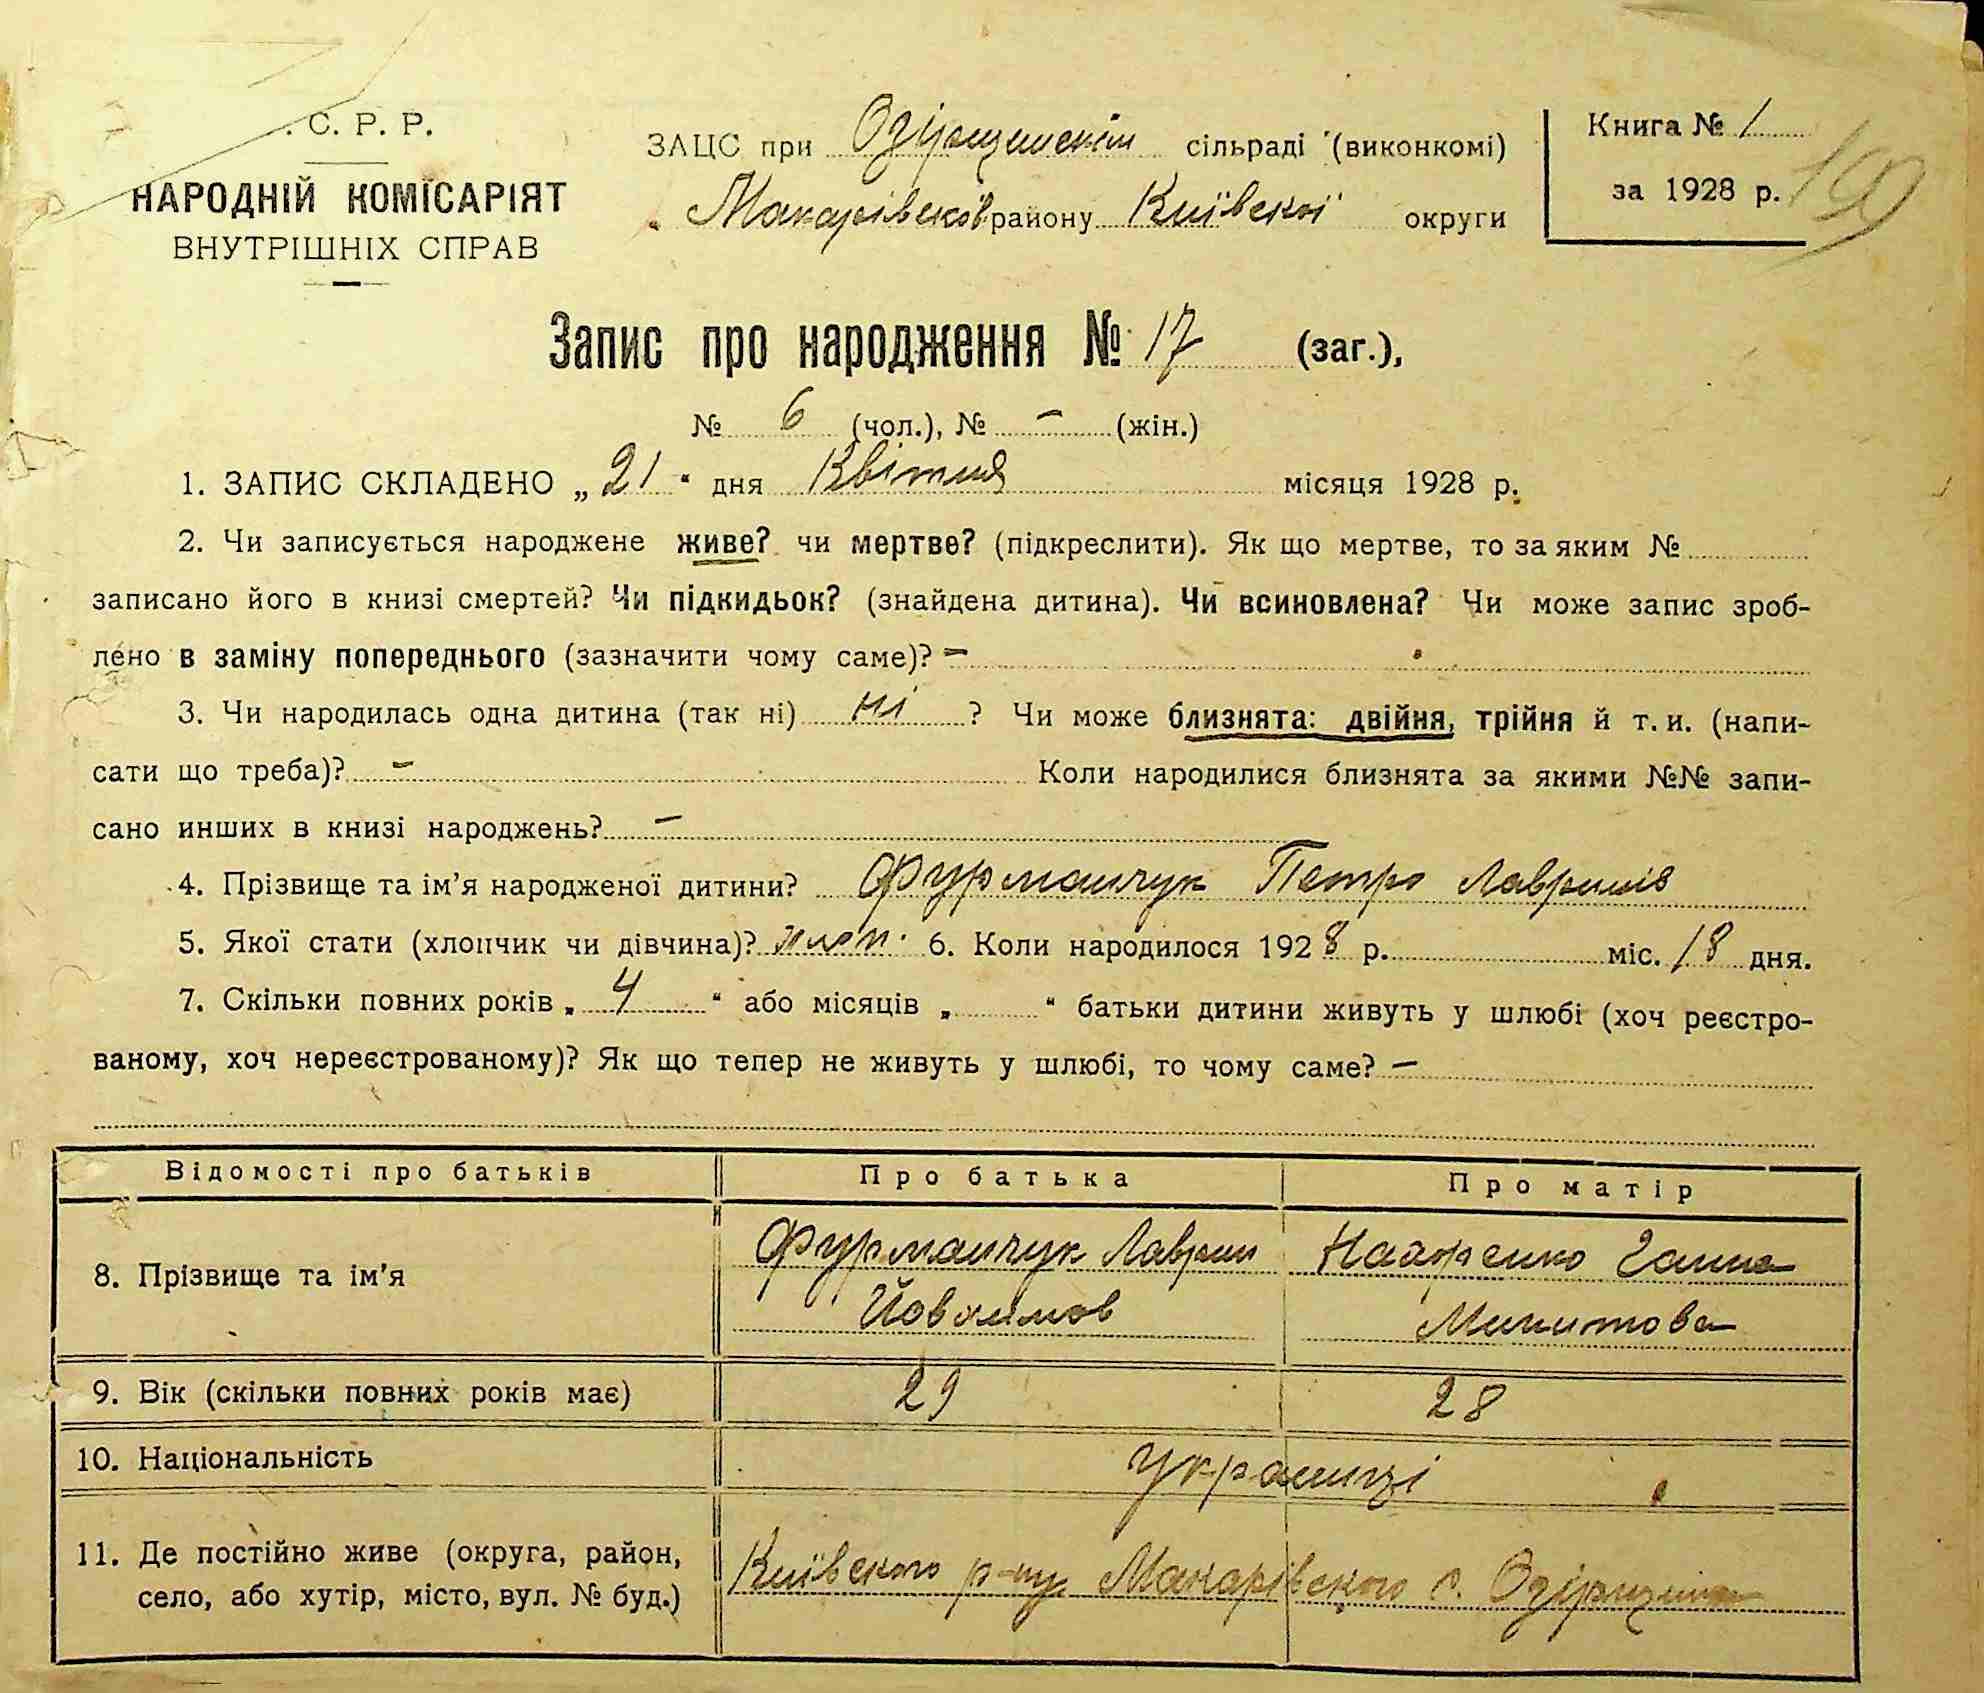 . С. Р. Р.
НАРОДНІЙ КОМІСАРІЯТ
ВНУТРІШНІХ СПРАВ
ЗАЦС при сільраді (виконкомі)
Макарівськ. району Київської округи
Книга № 1
за 1928 р.
199
Запис про народження № 17 (заг.),
№ 6 (чол.), № – (жін.)
1. ЗАПИС СКЛАДЕНО „21“ дня Квітня місяця 1928 р.
2. Чи записується народжене живе? чи мертве? (підкреслити). Як що мертве, то за яким №
записано його в книзі смертей? Чи підкидьок? (знайдена дитина). Чи всиновлена? Чи може запис зроб-
лено в заміну попереднього (зазначити чому саме)? –
3. Чи народилась одна дитина (так ні) ні ? Чи може близнята: двійня, трійня й т. и. (напи-
сати що треба)? – Коли народилися близнята за якими №№ запи-
сано инших в книзі народжень? –
4. Прізвище та ім’я народженої дитини? Фурманчук Петро Лавринів
5. Якої стати (хлопчик чи дівчина)? хлоп. 6. Коли народилося 1928 р. міс. 18 дня.
7. Скільки повних років „4“ або місяців „ “ батьки дитини живуть у шлюбі (хоч реєстро-
ваному, хоч нереєстрованому)? Як що тепер не живуть у шлюбі, то чому саме? –
Відомості про батьків Про батька Про матір
8. Прізвище та ім’я Фурманчук Лаврин Ганна
Йовхимов Микитова
9. Вік (скільки повних років має) 29 28
10. Національність Українці
11. Де постійно живе (округа, район,
село, або хутір, місто, вул. № буд.) Київського р-ну Макарівського с.